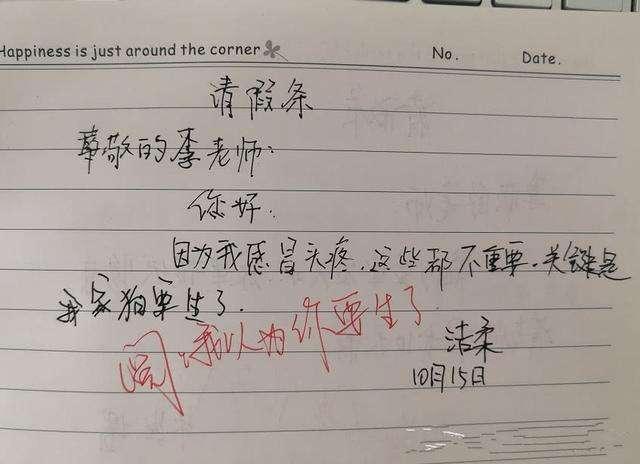 Happiness is just around the corner No. Date.
请假条
尊敬的李老师:
你好.
因为我感冒头疼.这些都不重要.关键是
我家狗要生了.
我以为你要生了
洁柔
10月15日